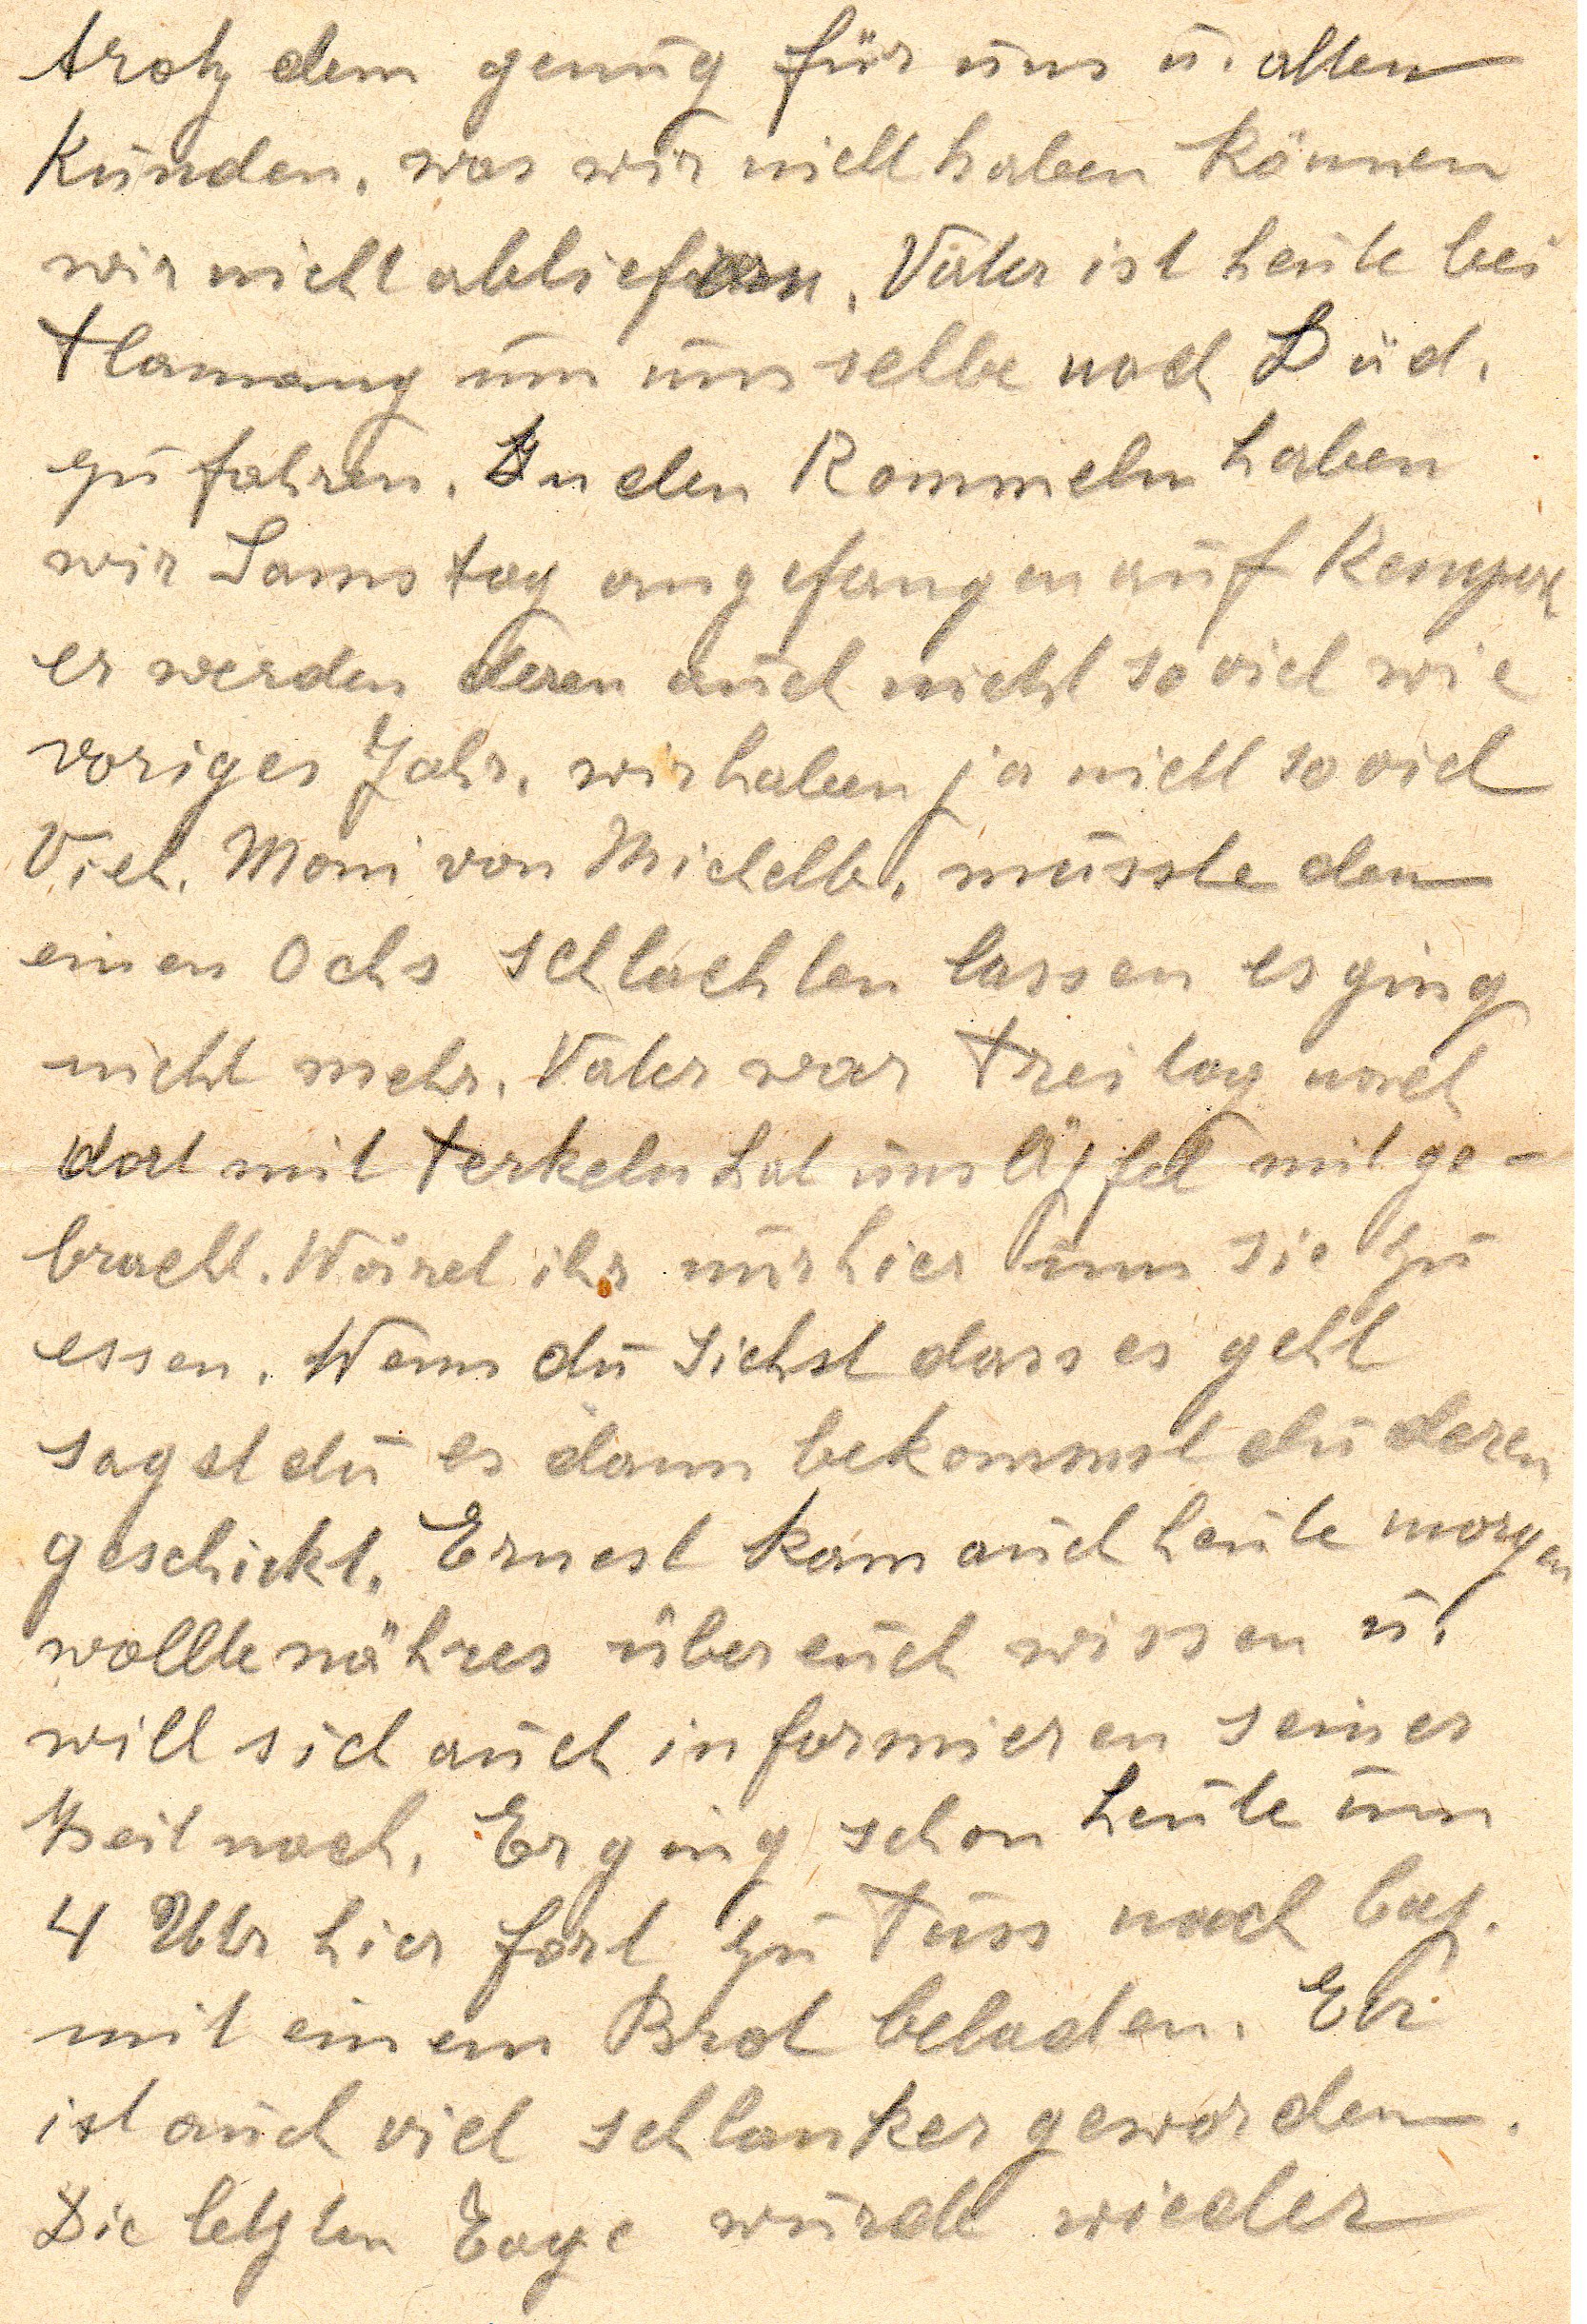 trotz dem genug für uns u. allen
Kunden, was wir nicht haben können
wir nicht abliefern. Vater ist heute bei
Flamang um um selbe nach Büd.
zu fahren. In den Rommeln haben
wir Samstag angefangen auf
er werden deren auch nicht so viel wie
voriges Jahr, wir haben ja nicht so viel
Vieh. Moni von Michelb. musste den
einen Ochs schlachten lassen es ging
nicht mehr. Vater war Freitag nach
dort mit Ferkeln hat uns Äpfel mit ge-
bracht. Wäret ihr nur hier um sie zu
essen. Wenn du siehst dass es geht
sagst du es dann bekommst du deren
geschickt. Ernest kam auch heute morgen
wollte nähres über euch wissen u.
will sich auch informieren seiner
Zeit nach. Er ging schon heute um
4 Uhr hier fort zu Fuss nach
mit einem Brot beladen. Er
ist auch viel schlanker geworden.
Die letzten Tage wurde wieder